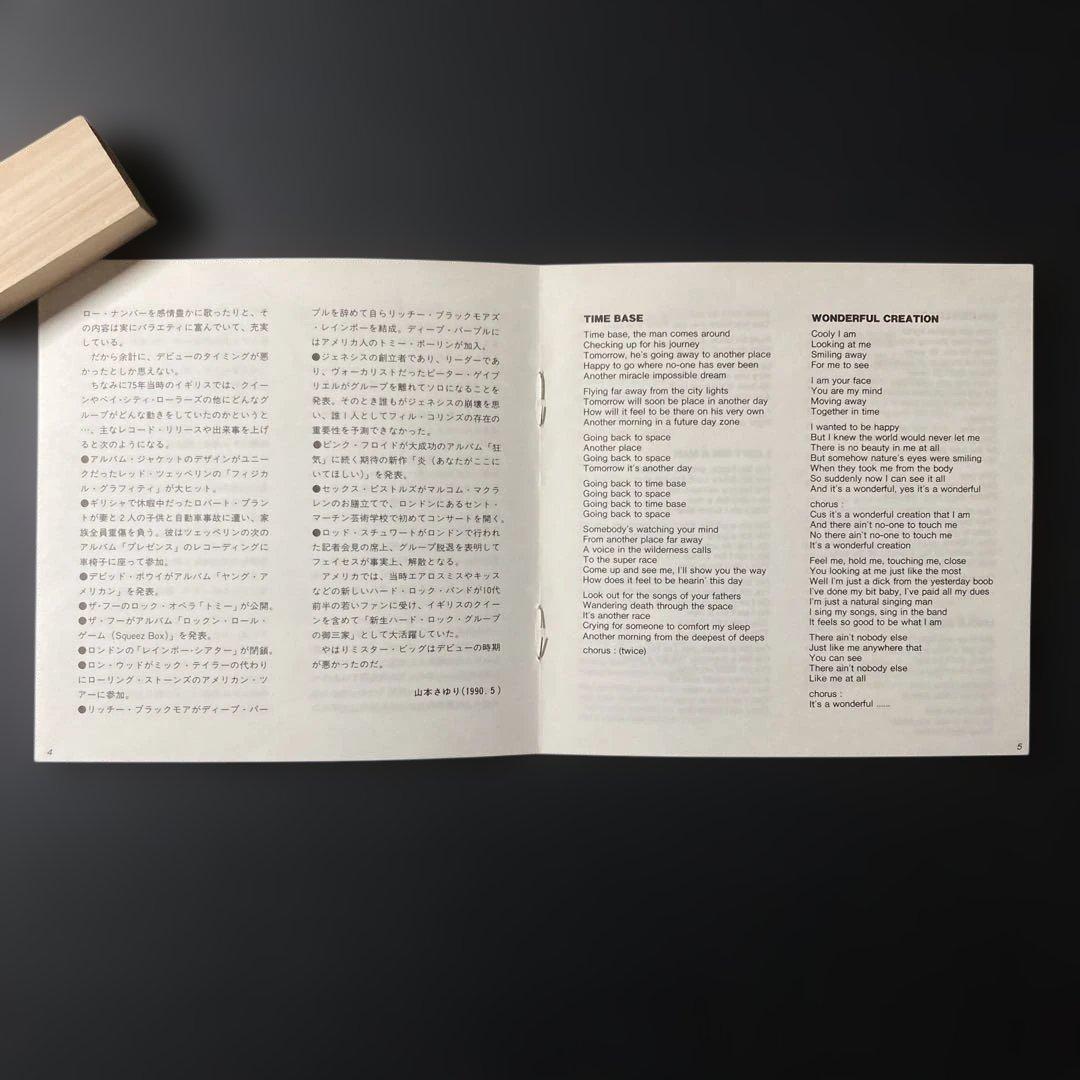 ロー・ナンバーを感情豊かに歌ったりと、そ
の内容は実にバラエティに富んでいて、充実
している。
　だから余計に、デビューのタイミングが悪
かったとしか思えない。
　ちなみに75年当時のイギリスでは、クイー
ンやベイ・シティ・ローラーズの他にどんなグ
ループがどんな動きをしていたのかというと
…、主なレコード・リリースや出来事を上げ
ると次のようになる。
●アルバム・ジャケットのデザインがユニー
クだったレッド・ツェッペリンの「フィジカ
ル・グラフィティ」が大ヒット。
●ギリシャで休暇中だったロバート・プラン
トが妻と2人の子供と自動車事故に遭い、家
族全員重傷を負う。彼はツェッペリンの次の
アルバム「プレゼンス」のレコーディングに
車椅子に座って参加。
●デビッド・ボウイがアルバム「ヤング・ア
メリカン」を発表。
●ザ・フーのロック・オペラ「トミー」が公開。
●ザ・フーがアルバム「ロックン・ロール・
ゲーム（Squeez Box）」を発表。
●ロンドンの「レインボー・シアター」が閉鎖。
●ロン・ウッドがミック・テイラーの代わり
にローリング・ストーンズのアメリカン・ツ
アーに参加。
●リッチー・ブラックモアがディープ・パー
4
プルを辞めて自らリッチー・ブラックモアズ
・レインボーを結成。ディープ・パープルに
はアメリカ人のトミー・ボーリンが加入。
●ジェネシスの創立者であり、リーダーであ
り、ヴォーカリストだったピーター・ゲイブ
リエルがグループを離れてソロになることを
発表。そのとき誰もがジェネシスの崩壊を思
い、誰1人としてフィル・コリンズの存在の
重要性を予測できなかった。
●ピンク・フロイドが大成功のアルバム「狂
気」に続く期待の新作「炎（あなたがここに
いてほしい）」を発表。
●セックス・ピストルズがマルコム・マクラ
レンのお膳立てで、ロンドンにあるセント・
マーチン芸術学校で初めてコンサートを開く。
●ロッド・スチュワートがロンドンで行われ
た記者会見の席上、グループ脱退を表明して
フェイセスが事実上、解散となる。
　アメリカでは、当時エアロスミスやキッス
などの新しいハード・ロック・バンドが10代
前半の若いファンに受け、イギリスのクイー
ンを含めて「新生ハード・ロック・グループ
の御三家」として大活躍していた。
　やはりミスター・ビッグはデビューの時期
が悪かったのだ。
山本さゆり(1990.5)
TIME BASE
Time base, the man comes around
Checking up for his journey
Tomorrow, he's going away to another place
Happy to go where no-one has ever been
Another miracle impossible dream
Flying far away from the city lights
Tomorrow will soon be place in another day
How will it feel to be there on his very own
Another morning in a future day zone
Going back to space
Another place
Going back to space
Tomorrow it's another day
Going back to time base
Going back to space
Going back to time base
Going back to space
Somebody's watching your mind
From another place far away
A voice in the wilderness calls
To the super race
Come up and see me, I'll show you the way
How does it feel to be hearin' this day
Look out for the songs of your fathers
Wandering death through the space
It's another race
Crying for someone to comfort my sleep
Another morning from the deepest of deeps
chorus : (twice)
WONDERFUL CREATION
Cooly I am
Looking at me
Smiling away
For me to see
I am your face
You are my mind
Moving away
Together in time
I wanted to be happy
But I knew the world would never let me
There is no beauty in me at all
But somehow nature's eyes were smiling
When they took me from the body
So suddenly now I can see it all
And it's a wonderful, yes it's a wonderful
chorus :
Cus it's a wonderful creation that I am
And there ain't no-one to touch me
No there ain't no-one to touch me
It's a wonderful creation
Feel me, hold me, touching me, close
You looking at me just like the most
Well I'm just a dick from the yesterday boob
I've done my bit baby, I've paid all my dues
I'm just a natural singing man
I sing my songs, sing in the band
It feels so good to be what I am
There ain't nobody else
Just like me anywhere that
You can see
There ain't nobody else
Like me at all
chorus :
It's a wonderful ......
5